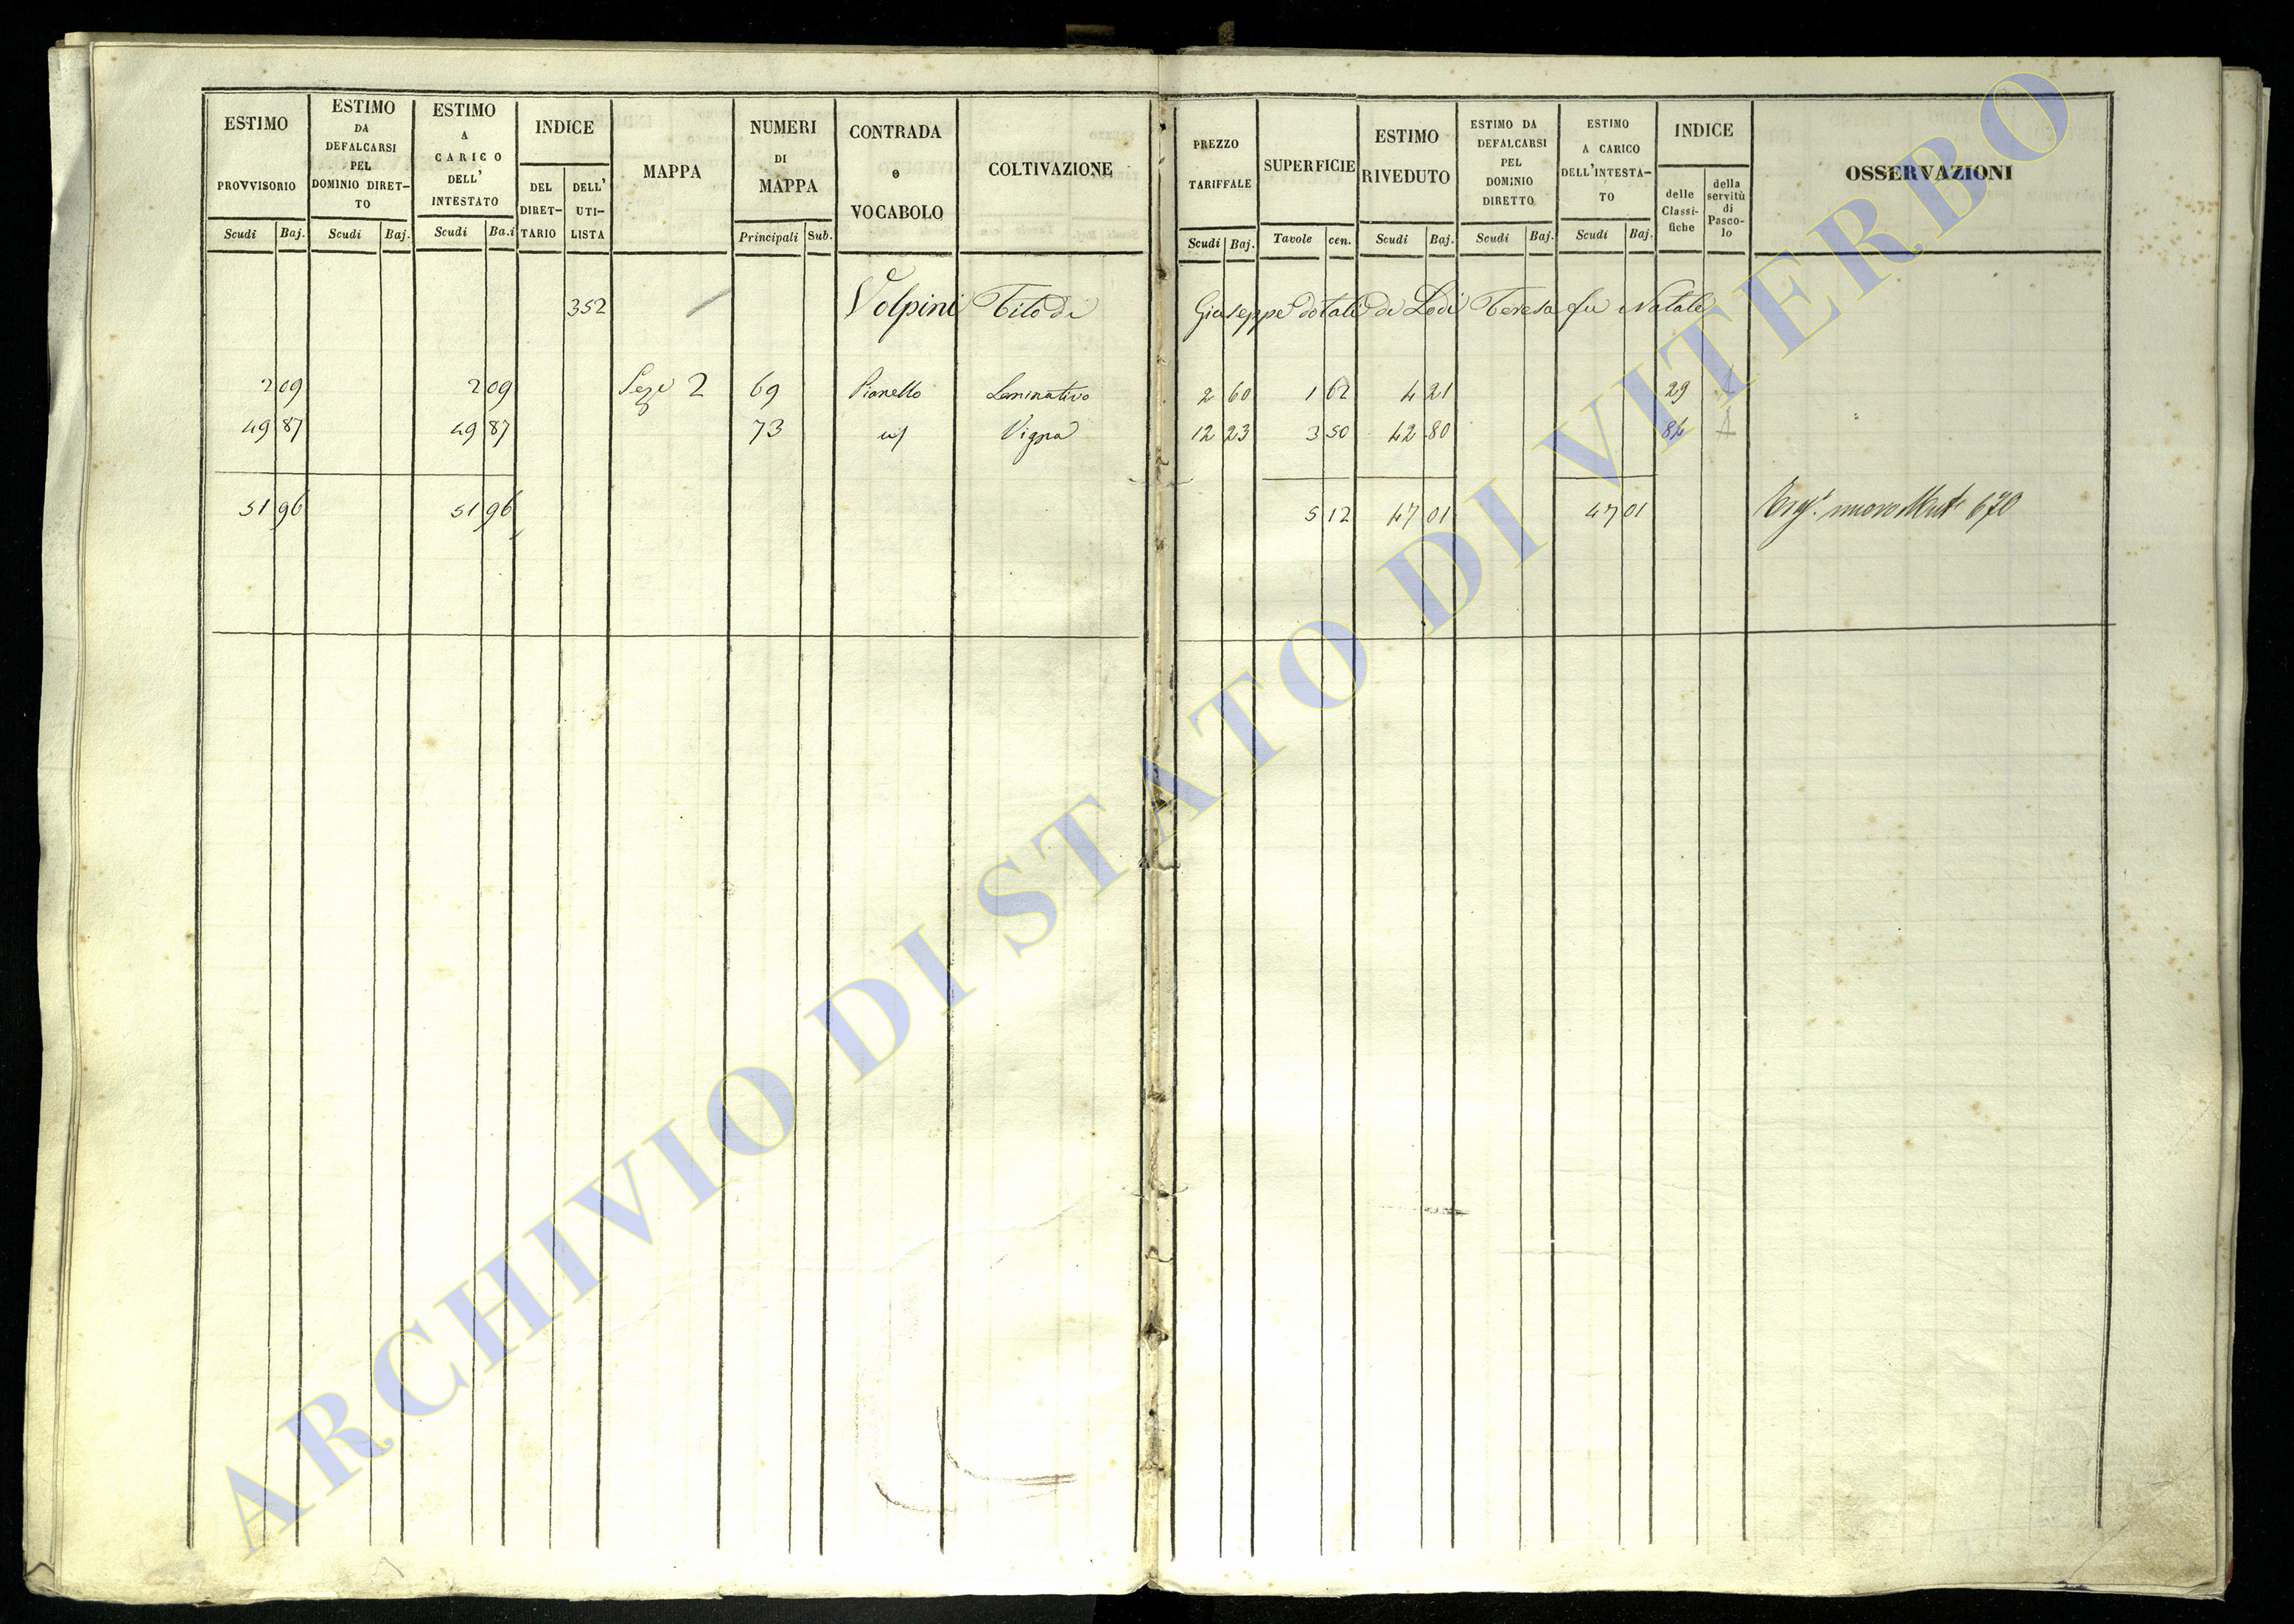 ESTIMO PROVVISORIO Scudi Baj.
ESTIMO DA DEFALCARSI PEL DOMINIO DIRET-TO Scudi Baj.
ESTIMO A CARICO DELL' INTESTATO Scudi Ba.i
INDICE DEL DIRET-TARIO DELL' UTI-LISTA
MAPPA
NUMERI DI MAPPA Principali Sub.
CONTRADA o VOCABOLO
COLTIVAZIONE
PREZZO TARIFFALE Scudi Baj.
SUPERFICIE Tavole cen.
ESTIMO RIVEDUTO Scudi Baj.
ESTIMO DA DEFALCARSI PEL DOMINIO DIRETTO Scudi Baj.
ESTIMO A CARICO DELL'INTESTA-TO Scudi Baj.
INDICE delle Classi-fiche della servitù di Pasco-lo
OSSERVAZIONI
352 Volpini Tito di Giuseppe dotali di Lodi Teresa fu Natale
2 09 2 09 Sez 2 69 Pianello Seminativo 2 60 1 62 4 21 29 A
49 87 49 87 73 id Vigna 12 23 3 50 42 80 84 A
51 96 51 96 5 12 47 01 47 01 nuovo 670
ARCHIVIO DI STATO DI VITERBO